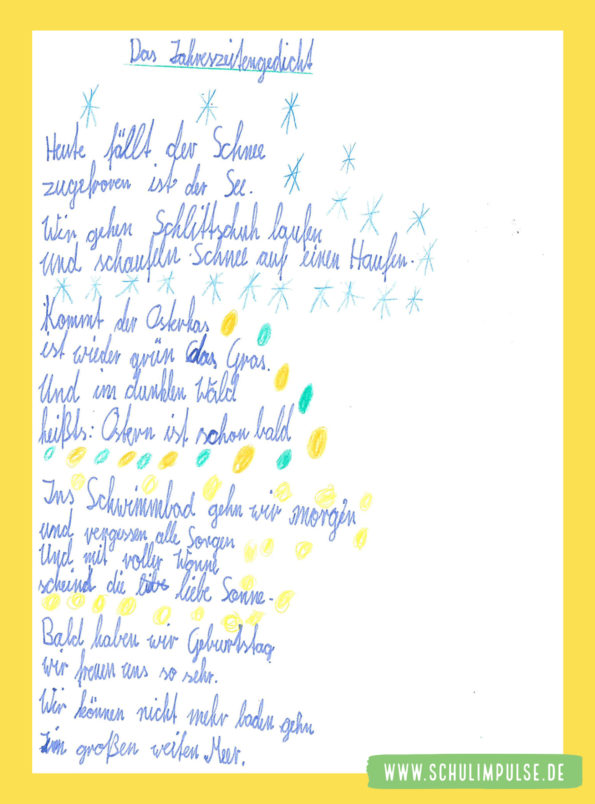 Das Jahreszeitengedicht
Heute fällt der Schnee
zugefroren ist der See.
Wir gehen Schlittschuh laufen
Und schaufeln Schnee auf einen Haufen.
Kommt der Osterhas
ist wieder grün das Gras.
Und im dunklen Wald
heißts: Ostern ist schon bald
Ins Schwimmbad gehn wir morgen
und vergessen alle Sorgen
Und mit voller Wonne
scheind die liebe Sonne.
Bald haben wir Geburtstag
wir freuen uns so sehr.
Wir können nicht mehr baden gehn
im großen weiten Meer.
WWW.SCHULIMPULSE.DE